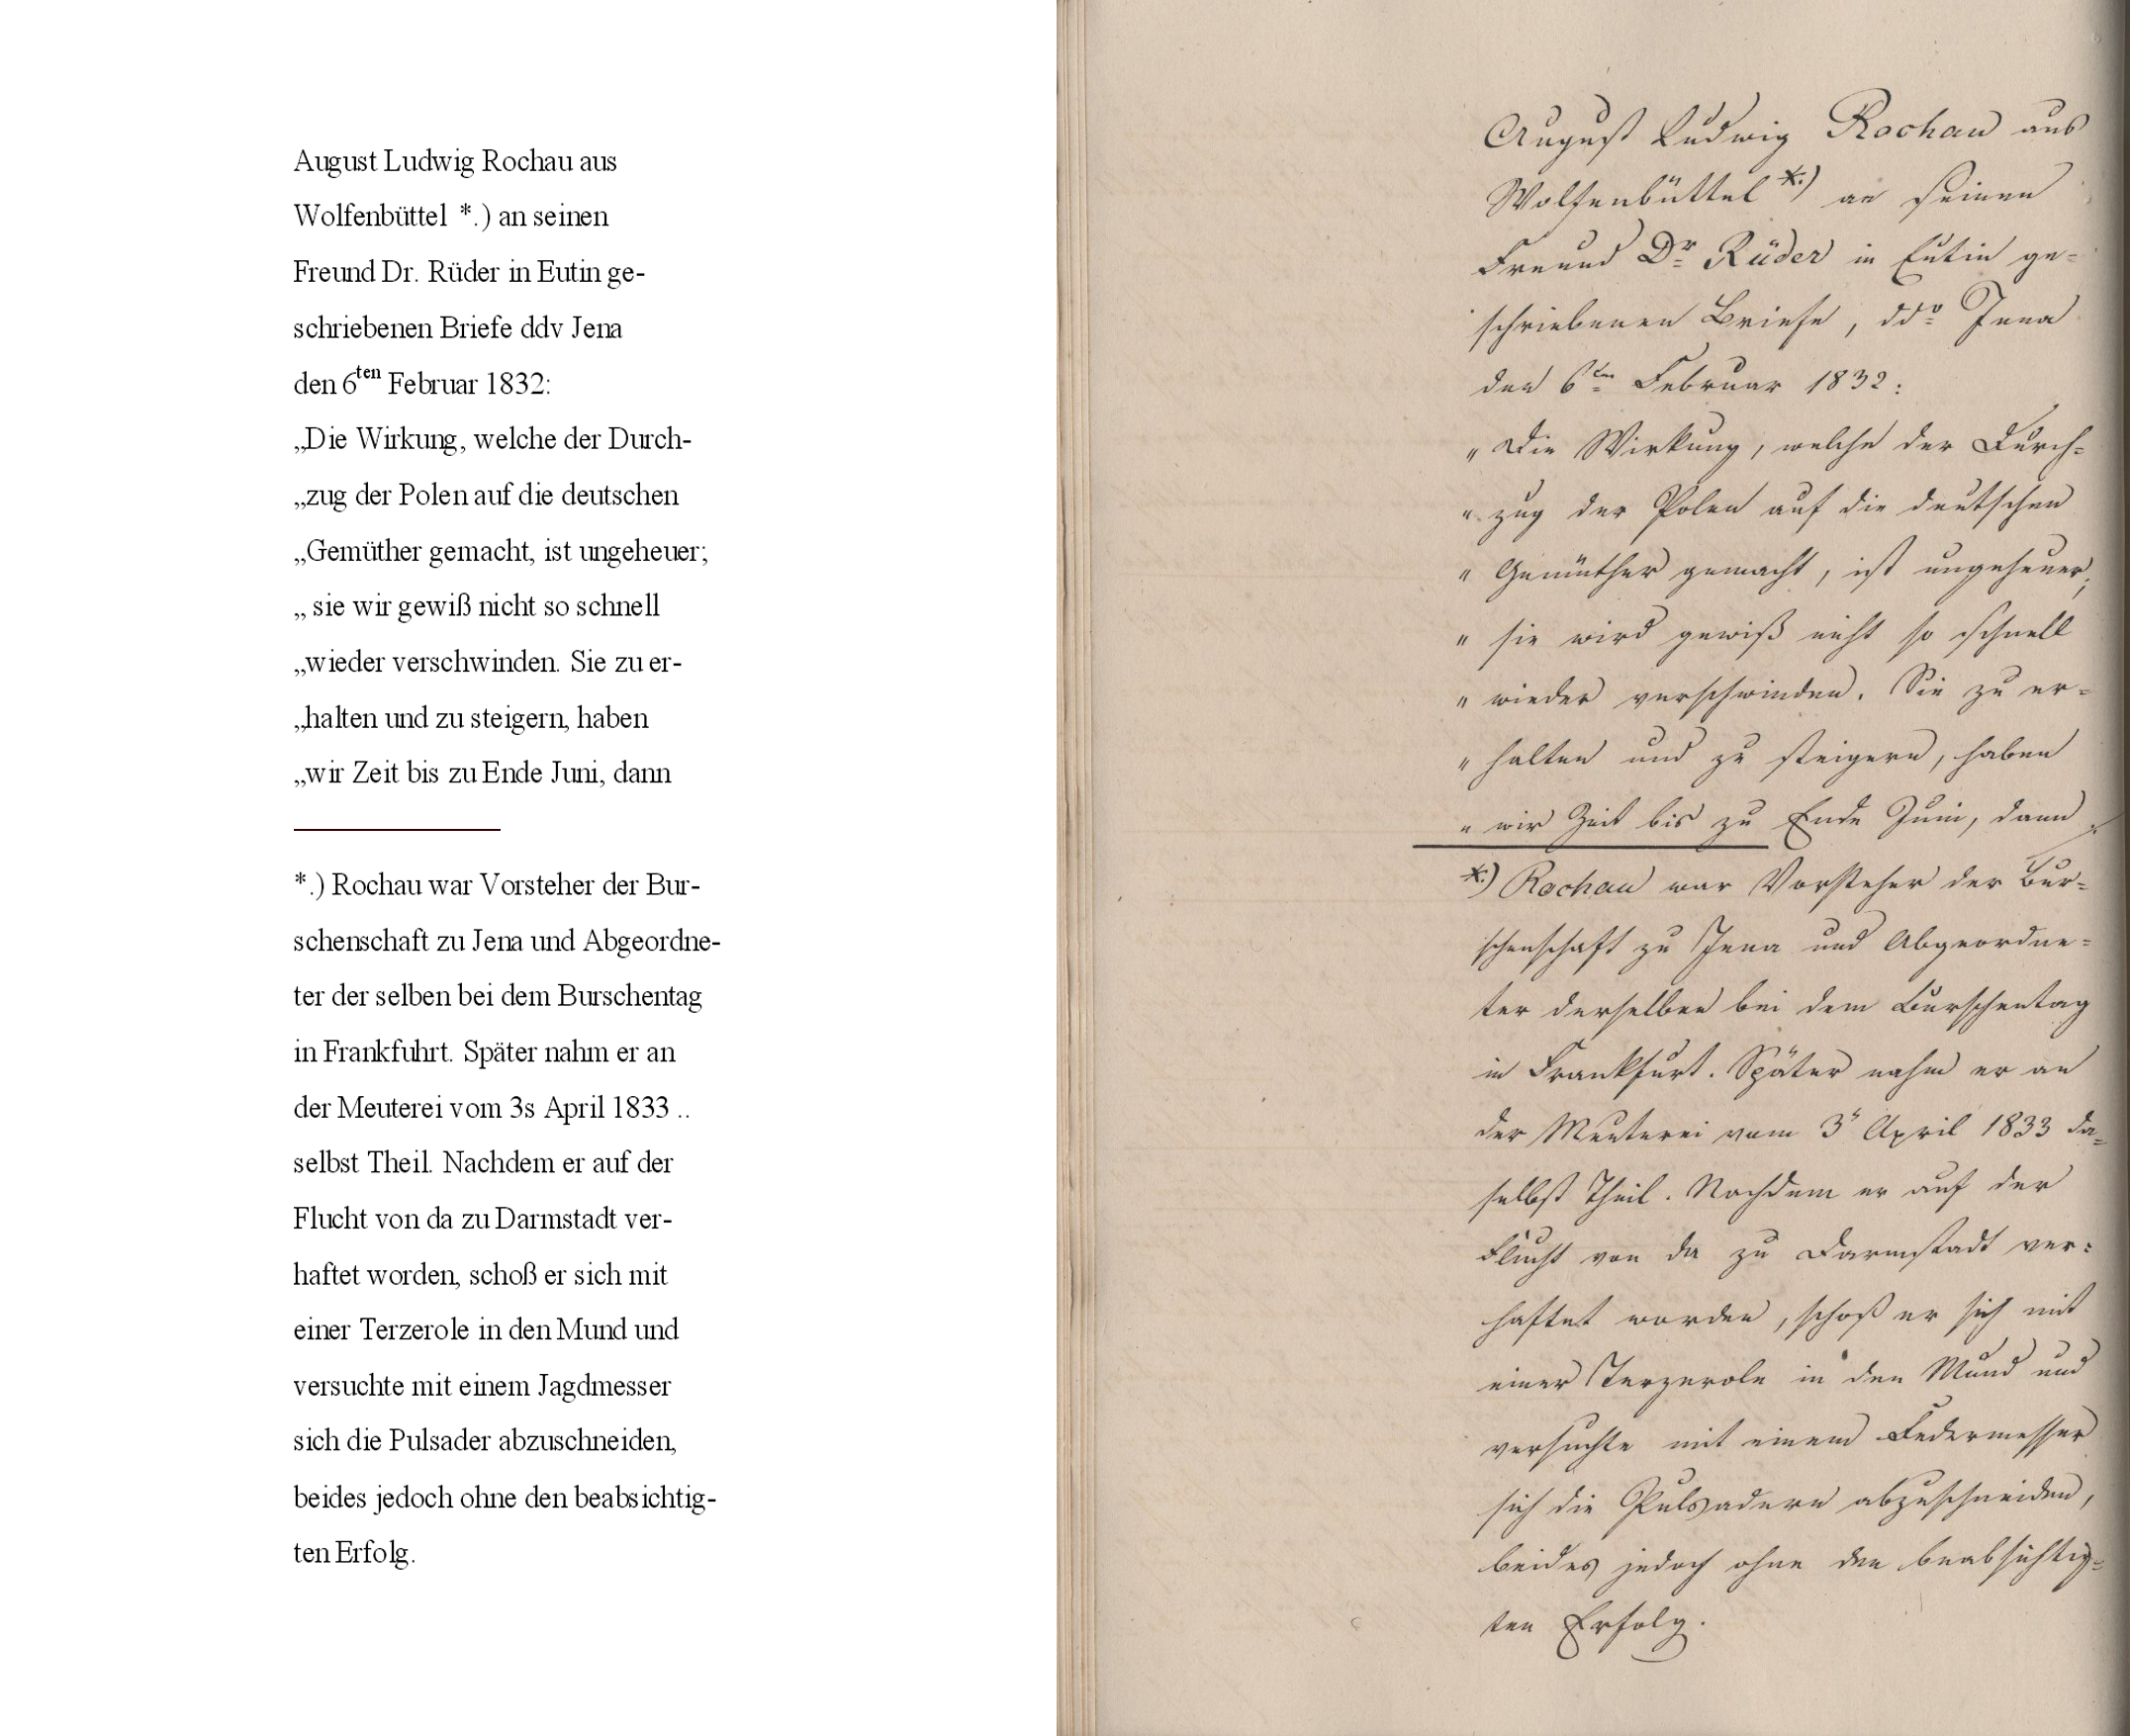 August Ludwig Rochau aus
Wolfenbüttel *.) an seinen
Freund Dr. Rüder in Eutin ge-
schriebenen Briefe ddv Jena
den 6ten Februar 1832:
„Die Wirkung, welche der Durch-
„zug der Polen auf die deutschen
„Gemüther gemacht, ist ungeheuer;
„ sie wir gewiß nicht so schnell
„wieder verschwinden. Sie zu er-
„halten und zu steigern, haben
„wir Zeit bis zu Ende Juni, dann
*.) Rochau war Vorsteher der Bur-
schenschaft zu Jena und Abgeordne-
ter der selben bei dem Burschentag
in Frankfuhrt. Später nahm er an
der Meuterei vom 3s April 1833 ..
selbst Theil. Nachdem er auf der
Flucht von da zu Darmstadt ver-
haftet worden, schoß er sich mit
einer Terzerole in den Mund und
versuchte mit einem Jagdmesser
sich die Pulsader abzuschneiden,
beides jedoch ohne den beabsichtig-
ten Erfolg.
August Ludwig Rochau aus
Wolfenbüttel *.) an seinen
Freund Dr Rüder in Eutin ge=
schriebenen Briefe, ddo Jena
den 6ten Februar 1832:
„Die Wirkung, welche der Durch=
„zug der Polen auf die deutschen
„Gemüther gemacht, ist ungeheuer;
„sie wird gewiß nicht so schnell
„wieder verschwinden. Sie zu er=
„halten und zu steigern, haben
„wir Zeit bis zu Ende Juni, dann
*.) Rochau war Vorsteher der Bur=
schenschaft zu Jena und Abgeordne=
ter derselben bei dem Burschentag
in Frankfurt. Später nahm er an
der Meuterei vom 3s April 1833 da=
selbst Theil. Nachdem er auf der
Flucht von da zu Darmstadt ver=
haftet worden, schoß er sich mit
einer Terzerole in den Mund und
versuchte mit einem Federmesser
sich die Pulsadern abzuschneiden,
beides jedoch ohne den beabsichtig=
ten Erfolg.